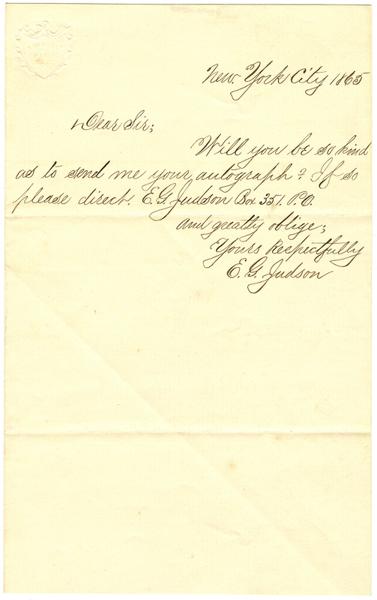 New York City 1865
Dear Sir;
Will you be so kind
as to send me your autograph? If so
please direct. E. G. Judson Box 351. P.O.
and greatly oblige;
Yours Respectfully
E. G. Judson